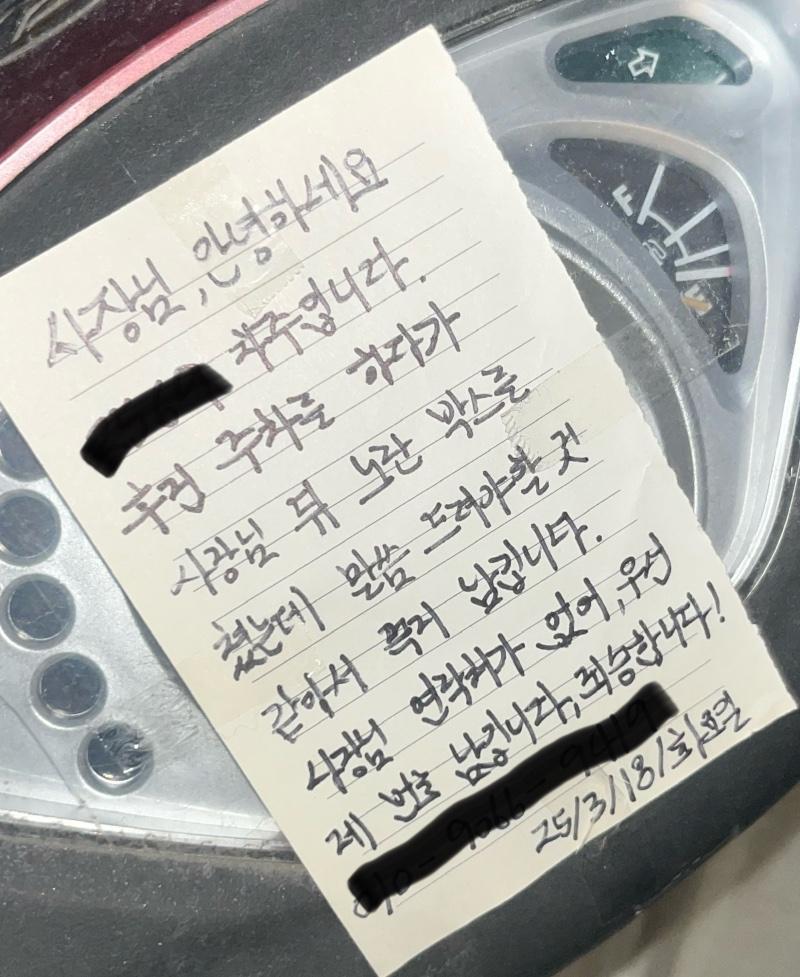 사장님, 안녕하세요
차주입니다.
후진 주차를 하다가
사장님 뒤 노란 박스를
쳤는데 말씀 드려야할 것
같아서 쪽지 남깁니다.
사장님 연락처가 없어, 우선
제 번호 남깁니다, 죄송합니다!
25/3/18/화요일
F